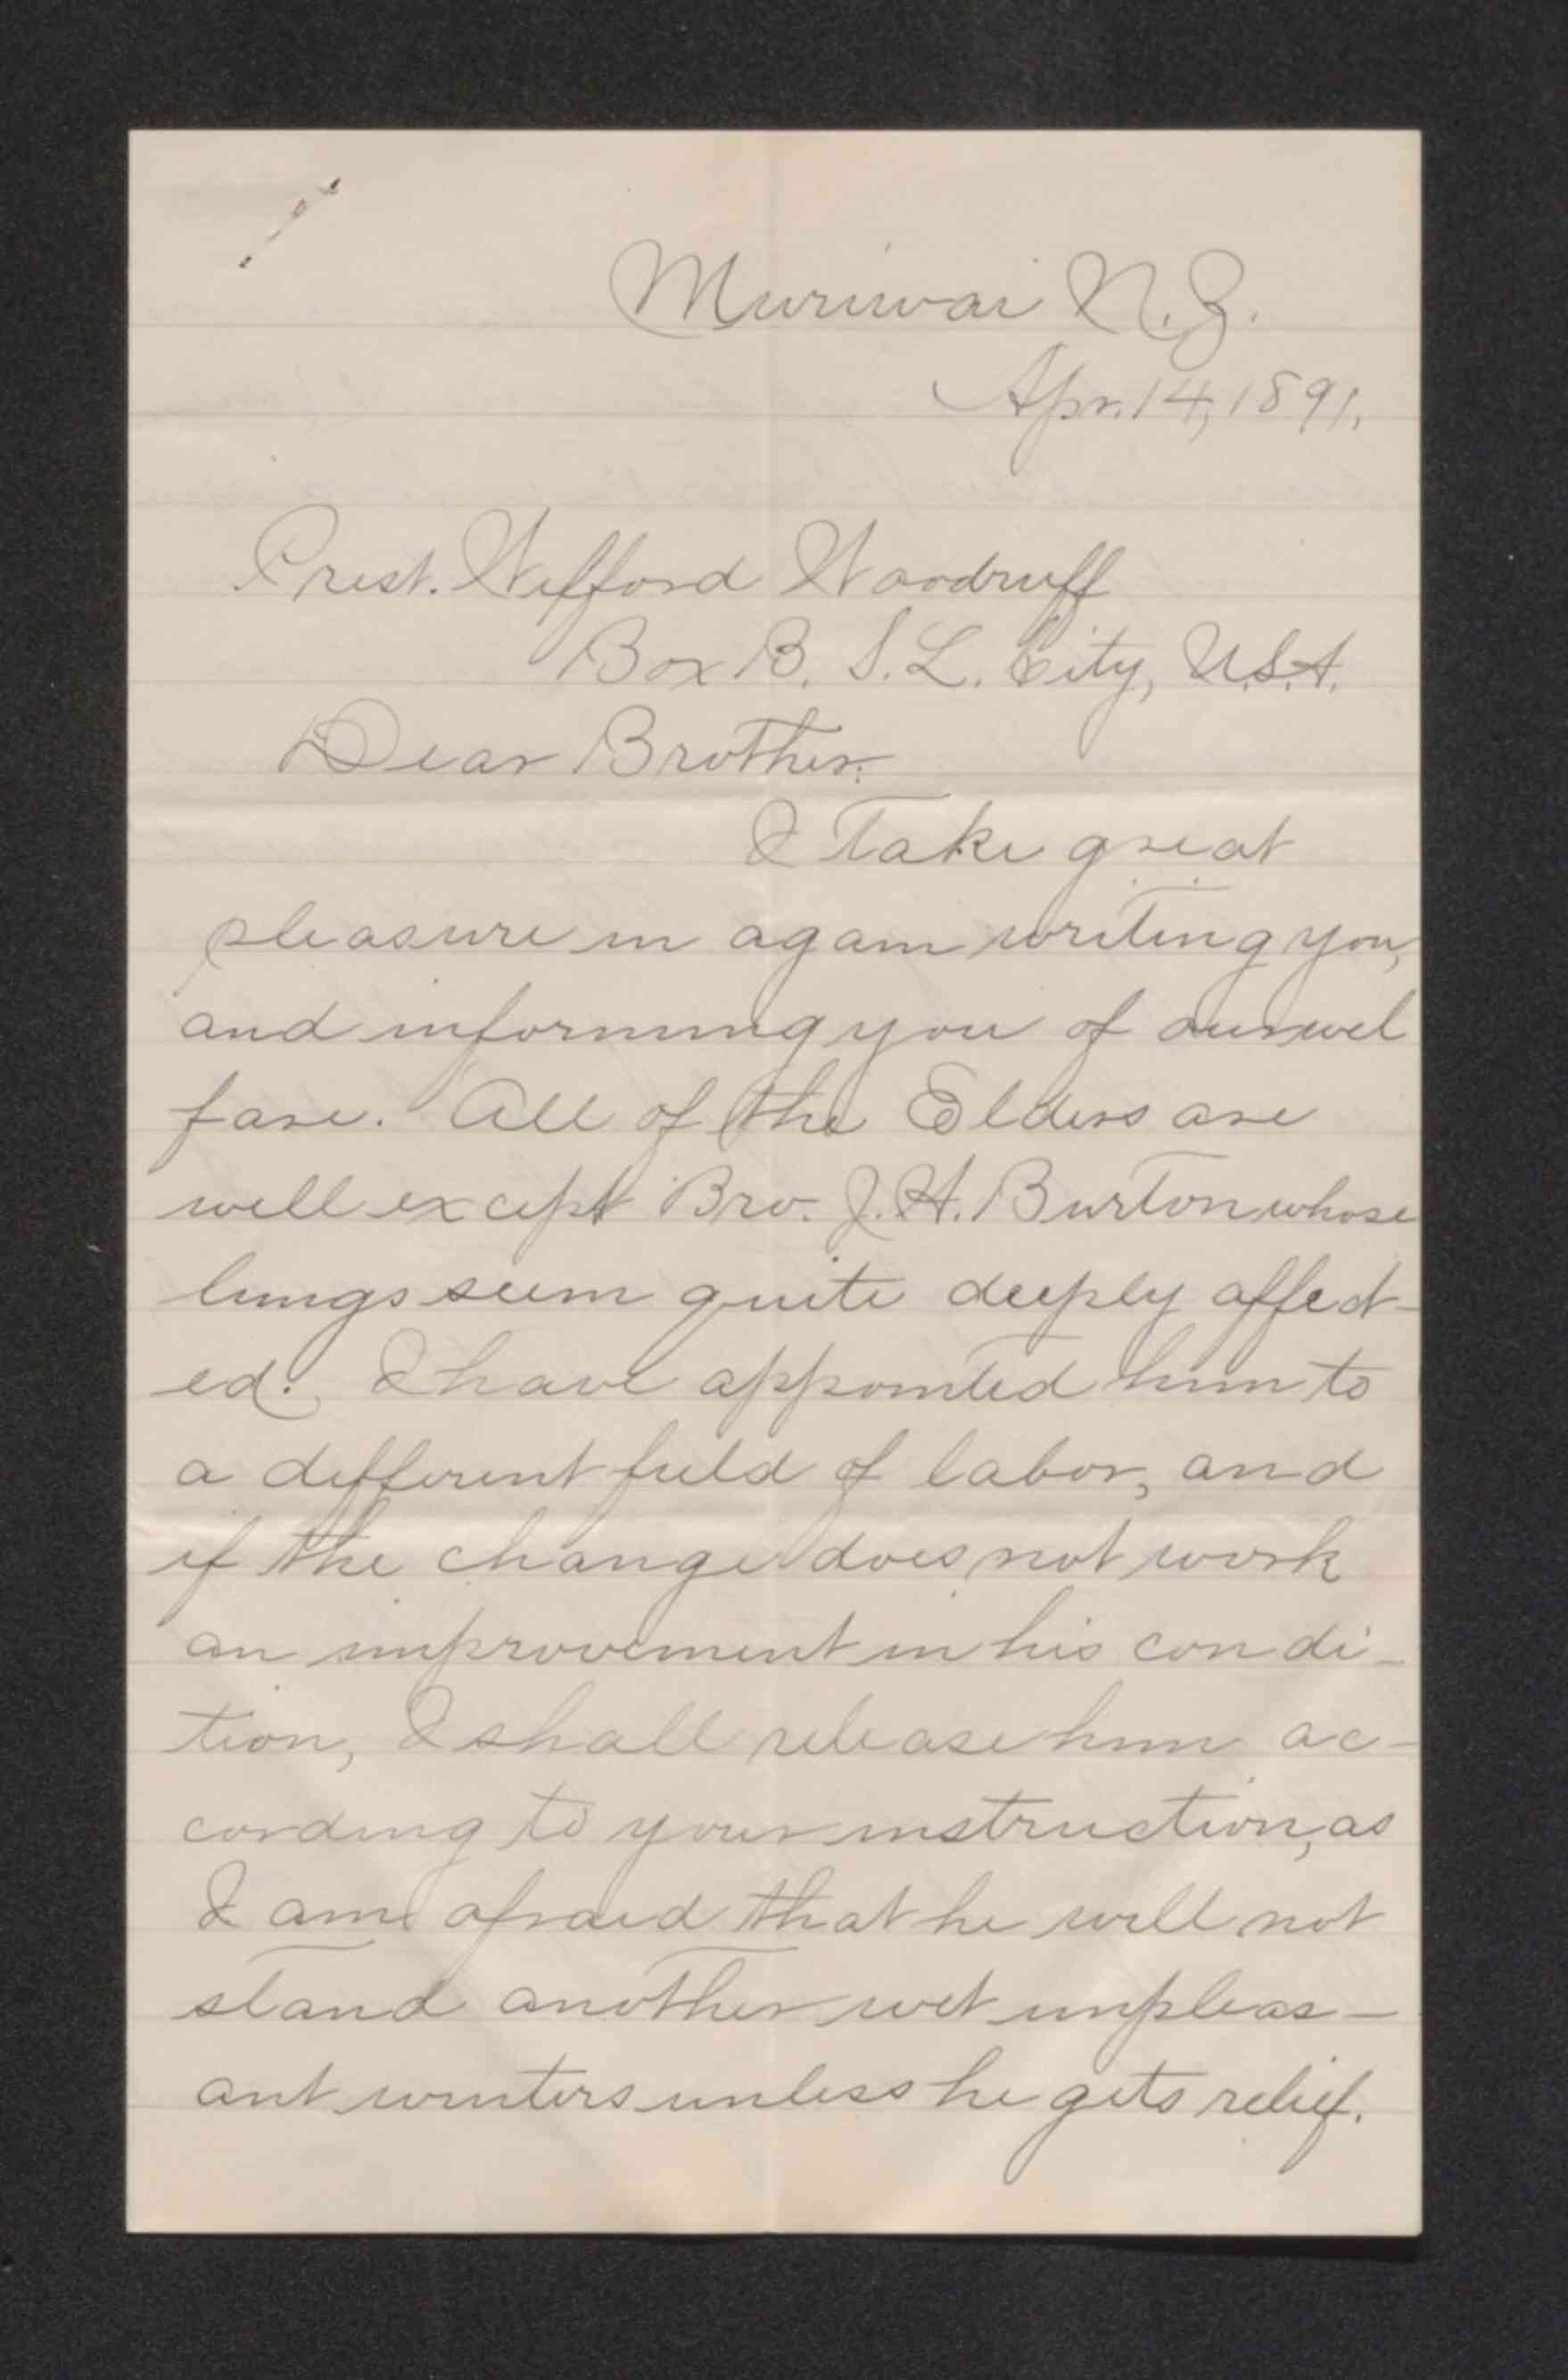 Muriwai N.Z.
Apr. 14, 1891.
Prest. Wilford Woodruff
Box B. S. L. City, U.S.A.
Dear Brother:
I take great
pleasure in again writing you,
and informing you of our wel
fare. All of the Elders are
well except Bro. J. H. Burton whose
lungs seem quite deeply affect-
ed. I have appointed him to
a different field of labor, and
if the change does not work
an improvement in his condi-
tion, I shall release him ac-
cording to your instruction, as
I am afraid that he will not
stand another wet unpleas-
ant winters unless he gets relief.